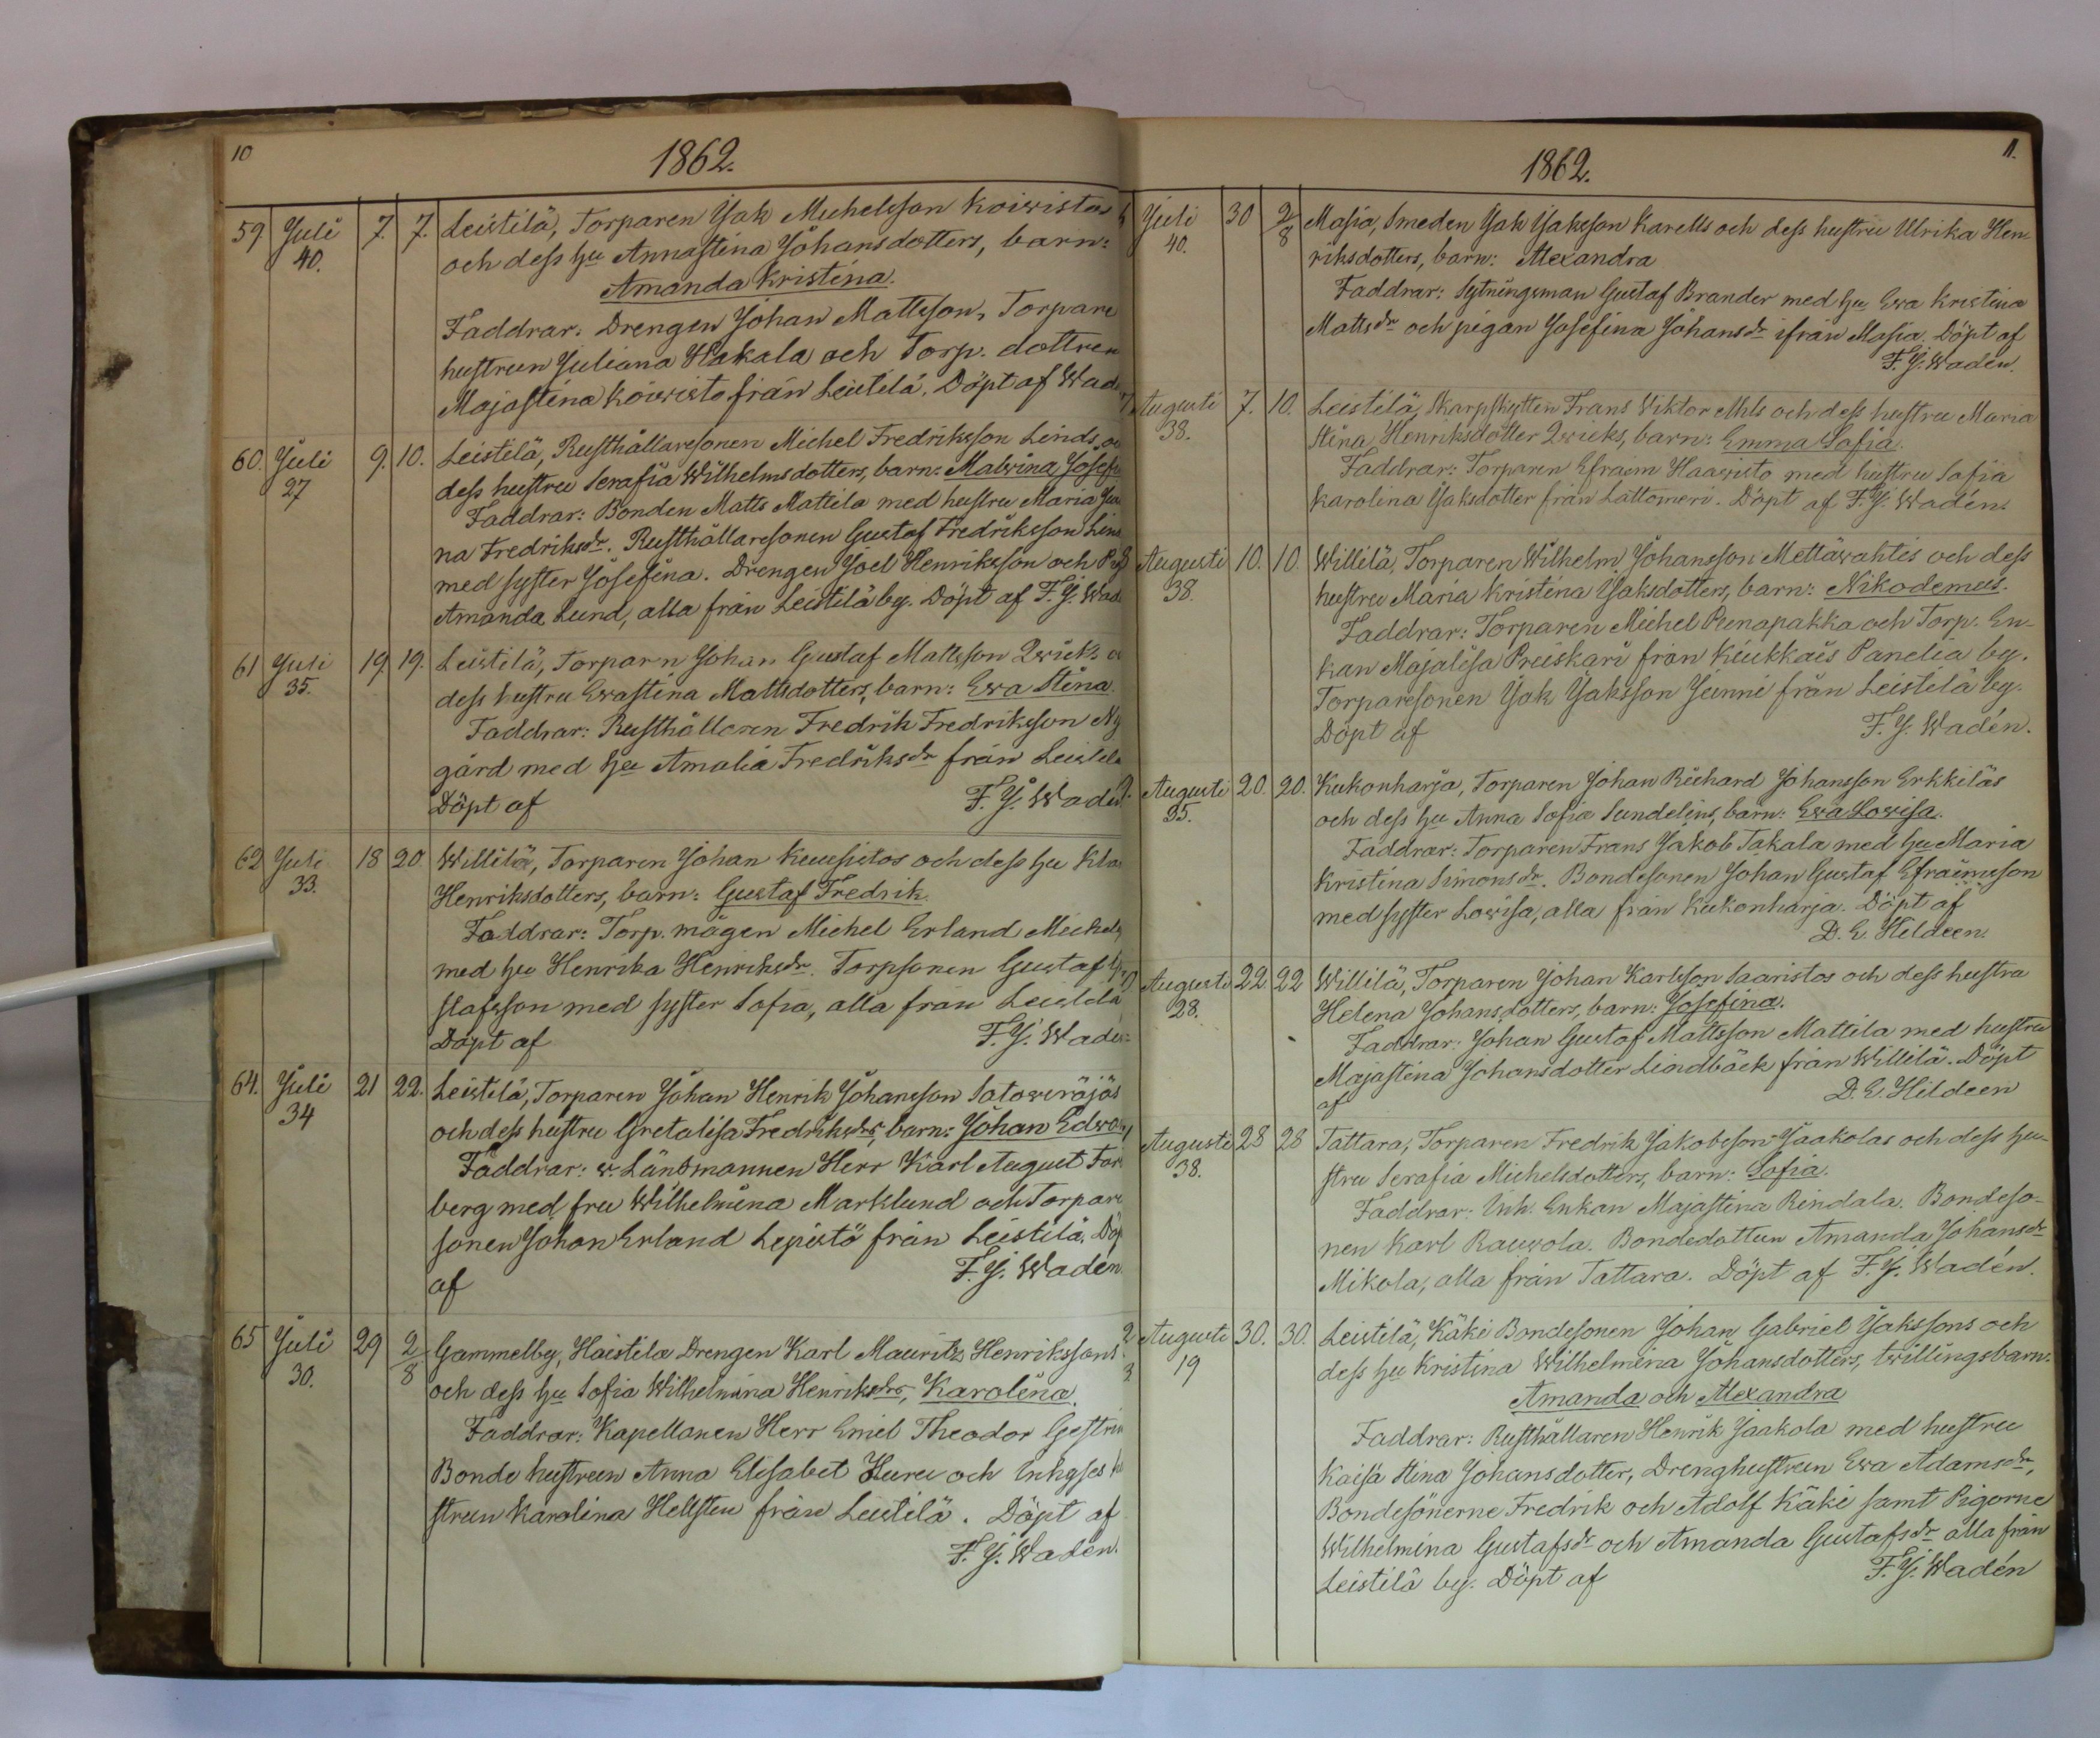 10
1862.
59 Juli 7. 7. Leistilä, Torparen Jak Michelsson Koiwistos
40. och dess hu Annastina Johansdotters, barn:
Amanda Kristina.
Faddrar: Drengen Johan Mattsson, Torpare
hustrun Juliana Hakala och Torp. dottren
Majastina Koiwisto från Leistilä. Döpt af Wadé
60. Juli 9. 10. Leistilä, Rusthållaresonen Michel Fredriksson Linds,
27 dess hustru Serafia Wilhelmsdotters, barn: Malvina Josefi
Faddrar: Bonden Matts Mattila med hustru Maria
na Fredriksdr. Rusthållaresonen Gustaf Fredriksson Lind
med syster Josefina. Drengen Joel Henriksson och
Amanda Lund, alla från Leistilä by. Döpt af F. J. Wadé
61 Juli 19. 19. Leistilä, Torparn Johan Gustaf Mattsson Qwicks o
35. dess hustru Ewastina Mattsdotters, barn: Ewa Stina.
Faddrar: Rusthållaren Fredrik Fredriksson Ny
gård med hu Amalia Fredriksdr från Leistilä
Döpt af F. J. Wadén
62 Juli 18 20 Willilä, Torparen Johan Kuusistos och dess hu
33. Henriksdotters, barn: Gustaf Fredrik.
Faddrar: Torp. mågen Michel Erland Michels
med hu Henrika Henriksdr. Torpsonen Gustaf
stafsson med syster Sofia, alla från Leistilä
Döpt af F. J. Wadén
64. Juli 21 22. Leistilä, Torparen Johan Henrik Johansson Satoweräjäs
34 och dess hustru Gretalisa Fredriksdrs, barn: Johan Edwa
Faddrar: v. Länsmannen Herr Karl August
berg med fru Wilhelmina Marklund och Torpare
sonen Johan Erland Lepistö från Leistilä. Döp
af F. J. Wadén
65 Juli 29 2/8 Gammelby, Haistila Drengen Karl Mauritz Henrikssons
30. och dess hu Sofia Wilhelmina Henriksdrs, Karolina.
Faddrar: Kapellanen Herr Emil Theodor Gestrin
Bonde hustrun Anna Elisabet Huru och Inhyses
strun Karolina Hellsten från Leistilä. Döpt af
F. J. Wadén.
11.
1862.
Juli 30 2/8 Masia, Smeden Jak Jaksson Karells och dess hustru Ulrika Hen-
40. riksdotters, barn: Alexandra
Faddrar: Sytningsman Gustaf Brander med hu Ewa Kristina
Mattsdr och pigan Josefina Johansdr ifrån Masia. Döpt af
F. J. Wadén.
Augusti 7. 10. Leistilä, Skarpskytten Frans Wiktor Ahls och dess hustru Maria
38. Stina Henriksdotter Qwicks, barn: Emma Sofia.
Faddrar: Torparen Efraim Haawisto med hustru Sofia
Karolina Jaksdotter från Lattomeri. Döpt af F. J. Wadén.
Augusti 10. 10. Willilä, Torparen Wilhelm Johansson Mettäwahtis och dess
38. hustru Maria Kristina Jaksdotters, barn: Nikodemus.
Faddrar: Torparen Michel Peenapakka och Torp. En-
kan Majalisa Preiskari från Kiukkais Panelia by.
Torparesonen Jak Jaksson Junni från Leistilä by.
Döpt af F. J. Wadén.
Augusti 20. 20. Kukonharja, Torparen Johan Richard Johansson Erkkiläs
35. och dess hu Anna Sofia Sundelins, barn: Ewa Lowisa.
Faddrar: Torparen Frans Jakob Takala med hu Maria
Kristina Simonsdr. Bondesonen Johan Gustaf Efraimsson
med syster Lowisa, alla från Kukonharja. Döpt af
D. E. Hildeen.
Augusti 22 22 Willilä, Torparen Johan Karlsson Saaristos och dess hustru
28. Helena Johansdotters, barn: Josefina.
Faddrar: Johan Gustaf Mattsson Mattila med hustru
Majastina Johansdotter Lindbäck från Willilä. Döpt
af D. E. Hildeen
Augusti 28 28 Tattara, Torparen Fredrik Jakobsson Jaakolas och dess hu-
38. stru Serafia Michelsdotters, barn: Sofia.
Faddrar: Inh. Enkan Majastina Rindala. Bondeso-
nen Karl Rauwola. Bondedottern Amanda Johansdr
Mikola, alla från Tattara. Döpt af F. J. Wadén.
Augusti 30. 30. Leistilä, Käki Bondesonen Johan Gabriel Jakssons och
19 dess hu Kristina Wilhelmina Johansdotters, twillingsbarn:
Amanda och Alexandra
Faddrar: Rusthållaren Henrik Jaakola med hustru
Kaisa Stina Johansdotter, Drenghustrun Ewa Adamsdr,
Bondesönerne Fredrik och Adolf Käki samt Pigorne
Wilhelmina Gustafsdr och Amanda Gustafsdr alla från
Leistilä by. Döpt af F. J. Wadén